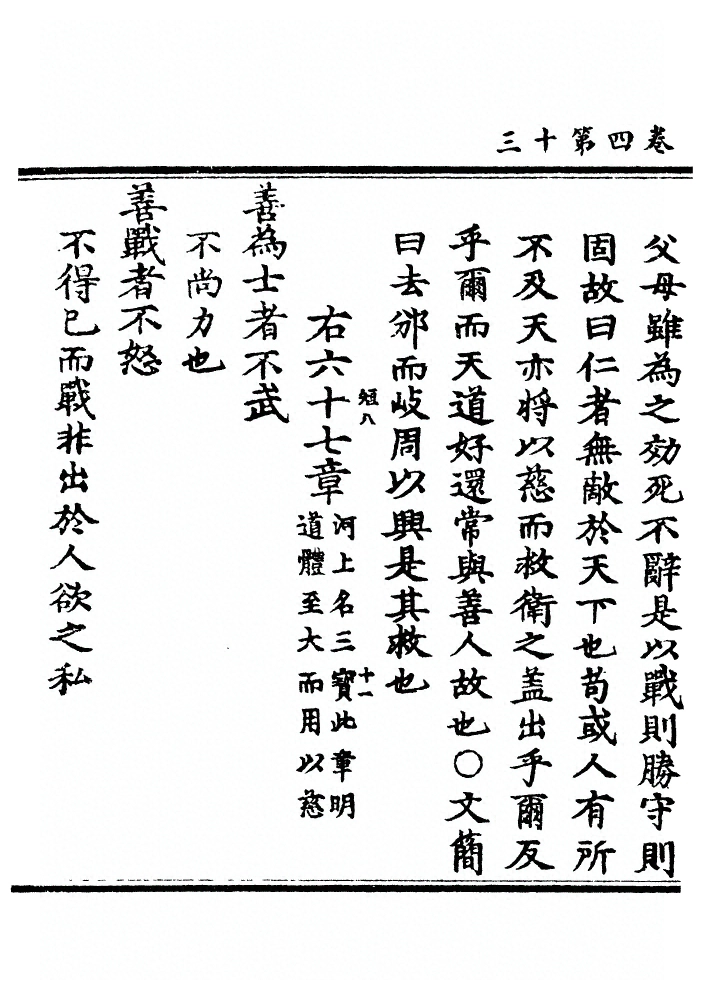 卷四第十三
父母雖為之効死不辭是以戰則勝守則
固故曰仁者無敵於天下也苟或人有所
不及天亦將以慈而救衛之蓋出乎爾反
乎爾而天道好還常與善人故也○文簡
曰去邠而岐周以興是其救也
短八
右六十七章
河上名三寶此章明
十一
道體至大而用以慈
善為士者不武
不尚力也
善戰者不怒
不得已而戰非出於人欲之私